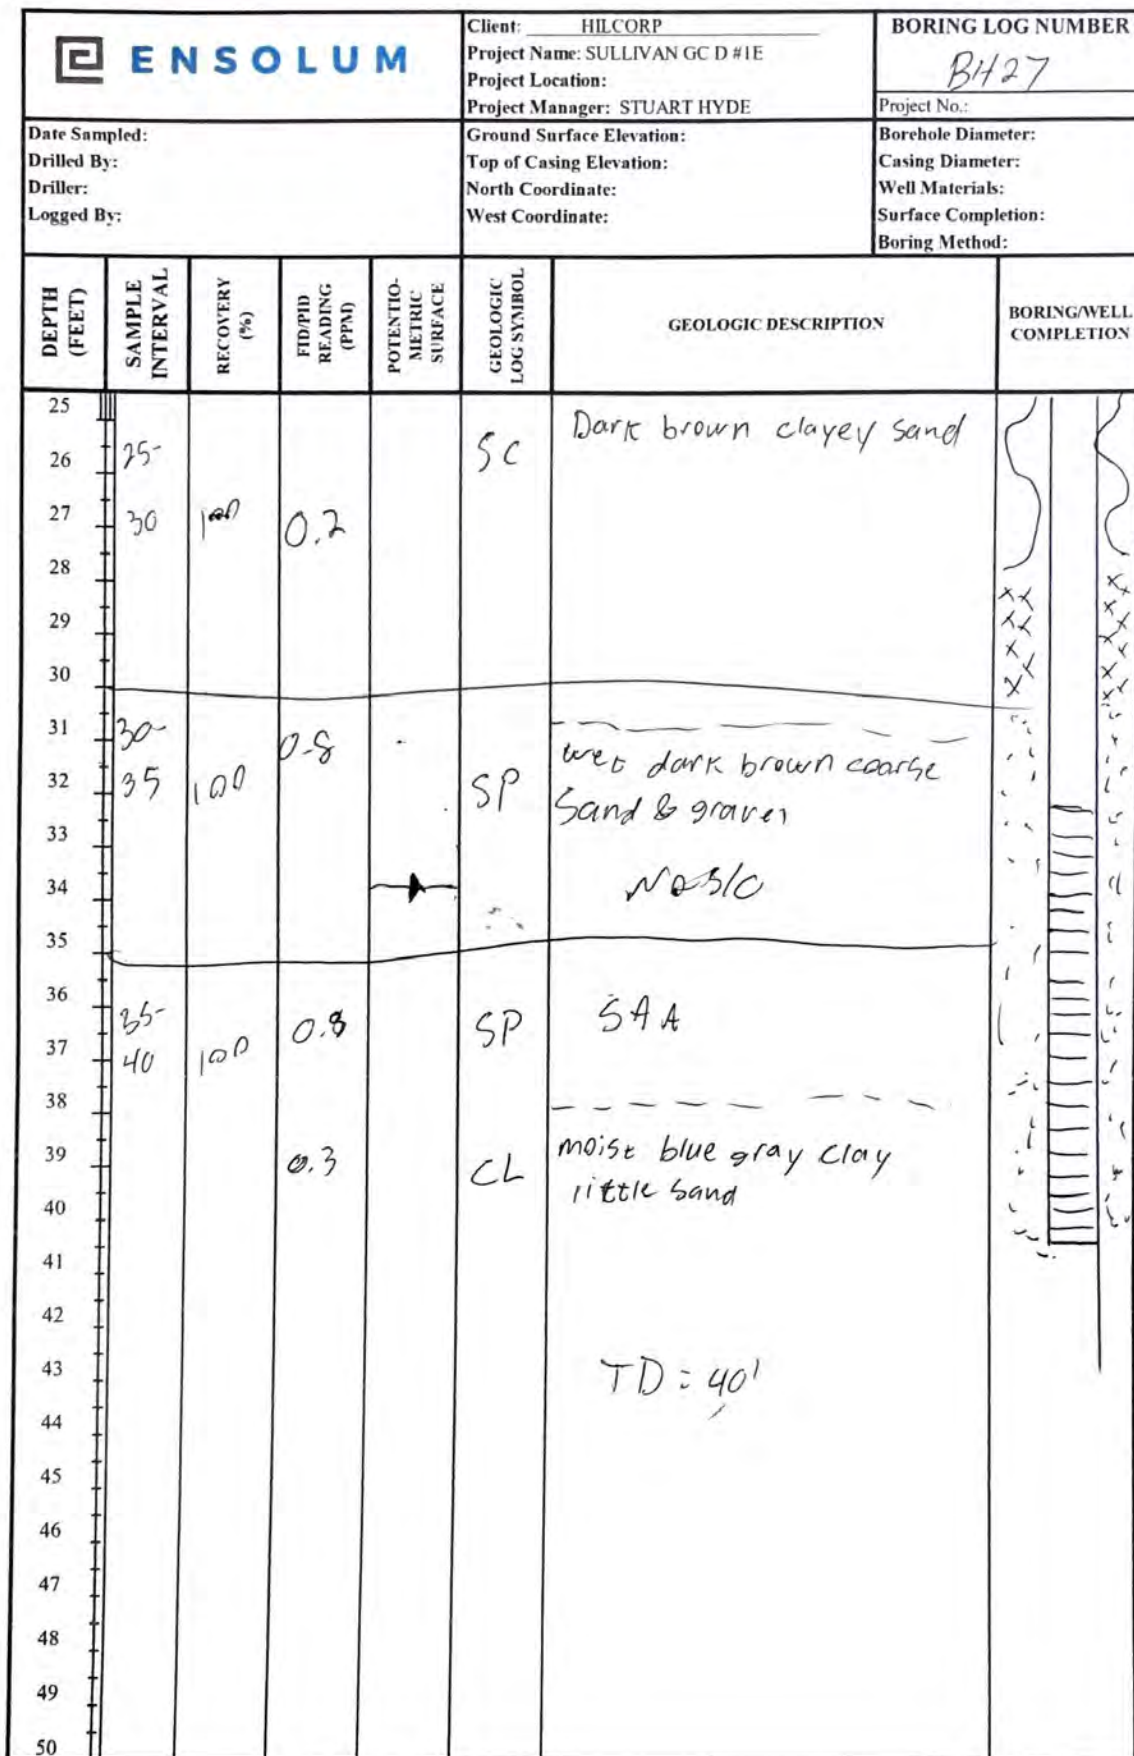 ENSOLUM
Client: HILCORP
Project Name: SULLIVAN GC D #1E
Project Location:
Project Manager: STUART HYDE
BORING LOG NUMBER
BH27
Project No.:
Date Sampled:
Drilled By:
Driller:
Logged By:
Ground Surface Elevation:
Top of Casing Elevation:
North Coordinate:
West Coordinate:
Borehole Diameter:
Casing Diameter:
Well Materials:
Surface Completion:
Boring Method:
DEPTH (FEET)
SAMPLE INTERVAL
RECOVERY (%)
FID/PID READING (PPM)
POTENTIO-METRIC SURFACE
GEOLOGIC LOG SYMBOL
GEOLOGIC DESCRIPTION
BORING/WELL COMPLETION
25
SC Dark brown clayey sand
26 25-
27 30 100 0.2
28
29
30
31 30- 0.8
wet dark brown coarse
32 35 100 SP
Sand & gravel
33
34 No S/O
35
36 35- 0.8 SP SAA
37 40 100
38
39 0.3 CL moist blue gray clay
little sand
40
41
42
43 TD = 40'
44
45
46
47
48
49
50